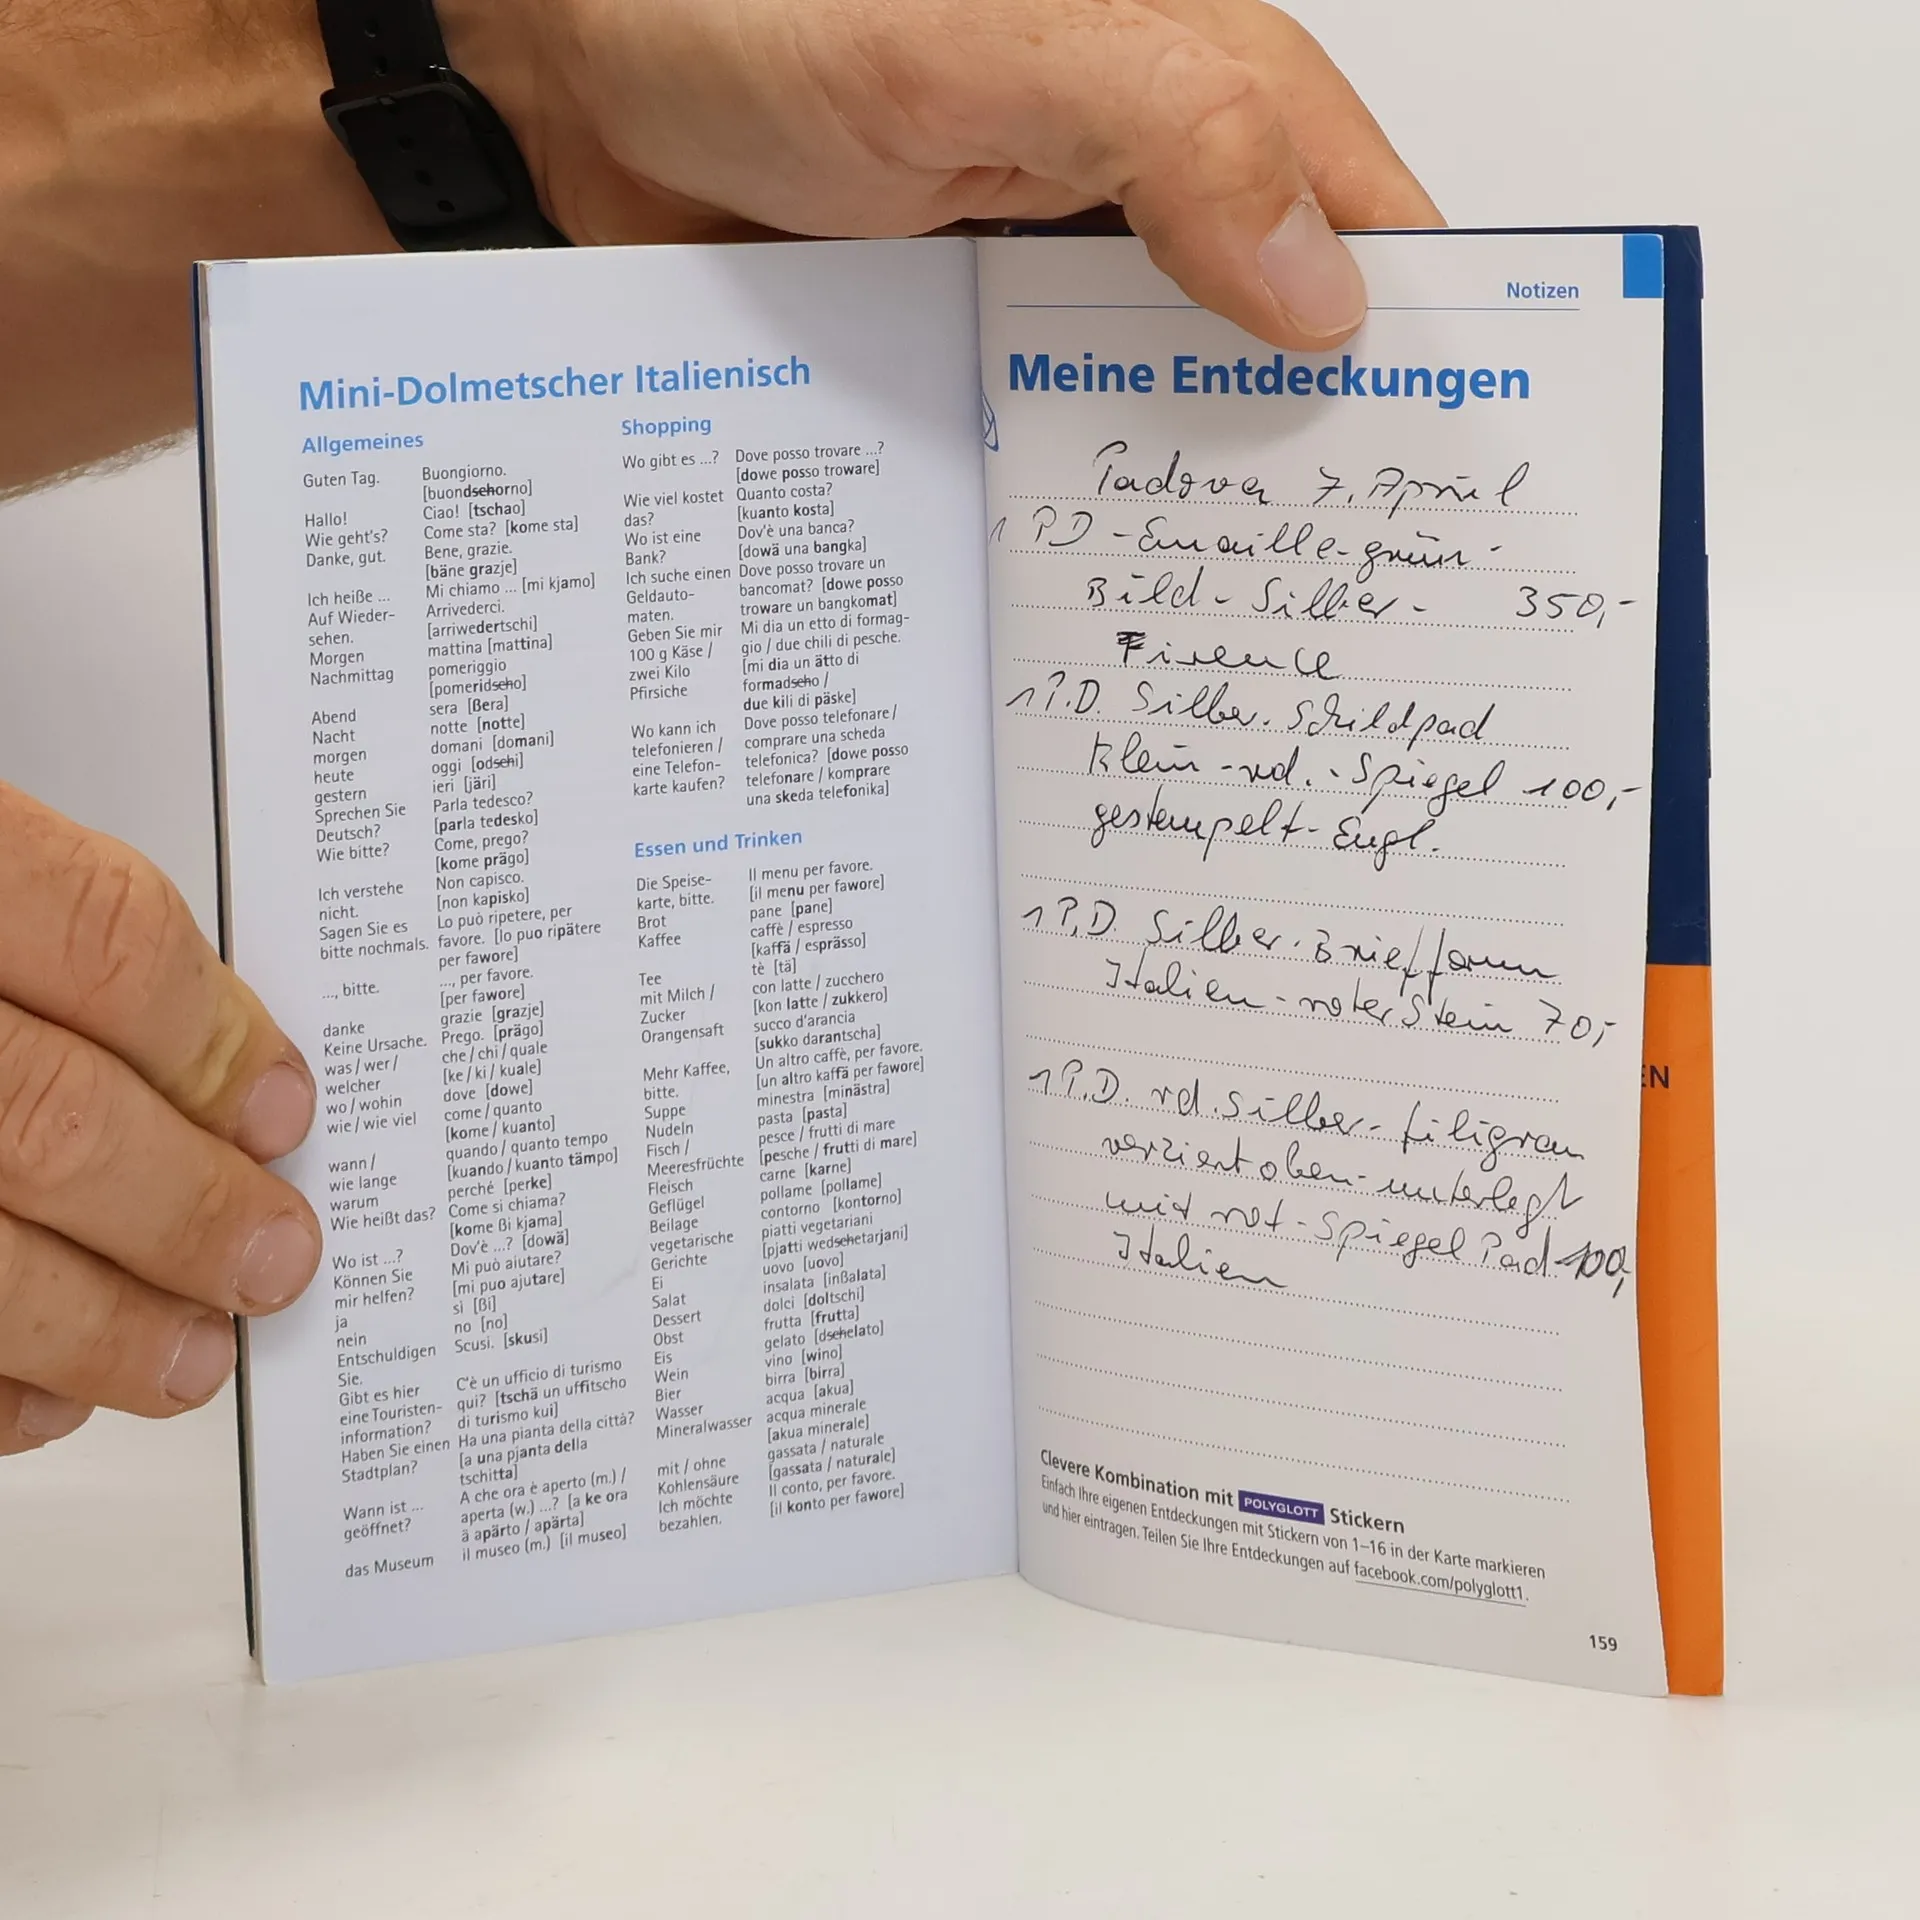 Mini-Dolmetscher Italienisch
Allgemeines
Guten Tag. Buongiorno.
[buondschorno]
Hallo! Ciao! [tschao]
Wie geht's? Come sta? [kome sta]
Danke, gut. Bene, grazie.
[bäne grazje]
Ich heiße ... Mi chiamo ... [mi kjamo]
Auf Wieder- Arrivederci.
sehen. [arriwedertschi]
Morgen mattina [mattina]
Nachmittag pomeriggio
[pomeridscho]
Abend sera [ßera]
Nacht notte [notte]
morgen domani [domani]
heute oggi [odschi]
gestern ieri [järi]
Sprechen Sie Parla tedesco?
Deutsch? [parla tedesko]
Wie bitte? Come, prego?
[kome prägo]
Ich verstehe Non capisco.
nicht. [non kapisko]
Sagen Sie es Lo può ripetere, per
bitte nochmals. favore. [lo puo ripätere
per fawore]
..., bitte. ..., per favore.
[per fawore]
danke grazie [grazje]
Keine Ursache. Prego. [prägo]
was / wer / che / chi / quale
welcher [ke / ki / kuale]
wo / wohin dove [dowe]
wie / wie viel come / quanto
[kome / kuanto]
wann / quando / quanto tempo
wie lange [kuando / kuanto tämpo]
warum perché [perke]
Wie heißt das? Come si chiama?
[kome ßi kjama]
Wo ist ...? Dov'è ...? [dowä]
Können Sie Mi può aiutare?
mir helfen? [mi puo ajutare]
ja sì [ßi]
nein no [no]
Entschuldigen Scusi. [skusi]
Sie.
Gibt es hier C'è un ufficio di turismo
eine Touristen- qui? [tschä un uffitscho
information? di turismo kui]
Haben Sie einen Ha una pianta della città?
Stadtplan? [a una pjanta della
tschitta]
Wann ist ... A che ora è aperto (m.) /
geöffnet? aperta (w.) ...? [a ke ora
ä apärto / apärta]
das Museum il museo (m.) [il museo]
Shopping
Wo gibt es ...? Dove posso trovare ...?
[dowe posso troware]
Wie viel kostet Quanto costa?
das? [kuanto kosta]
Wo ist eine Dov'è una banca?
Bank? [dowä una bangka]
Ich suche einen Dove posso trovare un
Geldauto- bancomat? [dowe posso
maten. troware un bangkomat]
Geben Sie mir Mi dia un etto di formag-
100 g Käse / gio / due chili di pesche.
zwei Kilo [mi dia un ätto di
Pfirsiche formadscho /
due kili di päske]
Wo kann ich Dove posso telefonare /
telefonieren / comprare una scheda
eine Telefon- telefonica? [dowe posso
karte kaufen? telefonare / komprare
una skeda telefonika]
Essen und Trinken
Die Speise- Il menu per favore.
karte, bitte. [il menu per fawore]
Brot pane [pane]
Kaffee caffè / espresso
[kaffä / esprässo]
Tee tè [tä]
mit Milch / con latte / zucchero
Zucker [kon latte / zukkero]
Orangensaft succo d'arancia
[sukko darantscha]
Mehr Kaffee, Un altro caffè, per favore.
bitte. [un altro kaffä per fawore]
Suppe minestra [minästra]
Nudeln pasta [pasta]
Fisch / pesce / frutti di mare
Meeresfrüchte [pesche / frutti di mare]
Fleisch carne [karne]
Geflügel pollame [pollame]
Beilage contorno [kontorno]
vegetarische piatti vegetariani
Gerichte [pjatti wedschetarjani]
Ei uovo [uovo]
Salat insalata [inßalata]
Dessert dolci [doltschi]
Obst frutta [frutta]
Eis gelato [dschelato]
Wein vino [wino]
Bier birra [birra]
Wasser acqua [akua]
Mineralwasser acqua minerale
[akua minerale]
mit / ohne gassata / naturale
Kohlensäure [gassata / naturale]
Ich möchte Il conto, per favore.
bezahlen. [il konto per fawore]
Notizen
Meine Entdeckungen
Padova 7. April
1 P.D - Emaille-grün -
Bild - Silber - 350,-
Firence
1 P.D. Silber. Schildpad
Klein - rd. - Spiegel 100,-
gestempelt - Engl.
1 P.D. Silber. Briefform
Italien - roter Stein 70,-
1 P.D. rd. Silber - filigran
verziert oben - unterlegt
mit rot - Spiegel Pad - 100,
Italien
Clevere Kombination mit POLYGLOTT Stickern
Einfach Ihre eigenen Entdeckungen mit Stickern von 1–16 in der Karte markieren
und hier eintragen. Teilen Sie Ihre Entdeckungen auf facebook.com/polyglott1.
159
EN